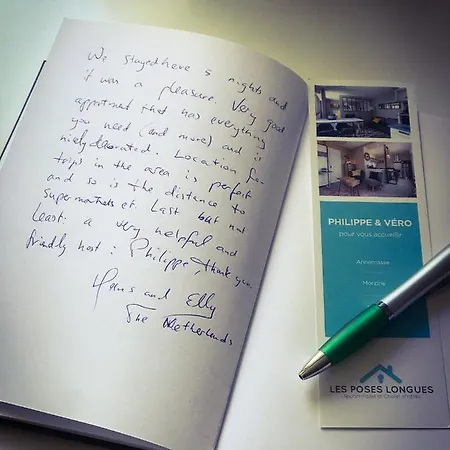 We stayed here 5 nights and
it was a pleasure. Very good
appartment that has everything
you need (and more) and is
nicely decorated. Location for
trips in the area is perfect
and so is the distance to
supermarkets et. Last but not
least: a very helpful and
friendly host: Philippe, thank you.
Hans and Elly
The Netherlands
PHILIPPE & VÉRO
pour vous accueillir
Annemasse
Morzine
LES POSES LONGUES
Appartements et Chambres d'hôtes